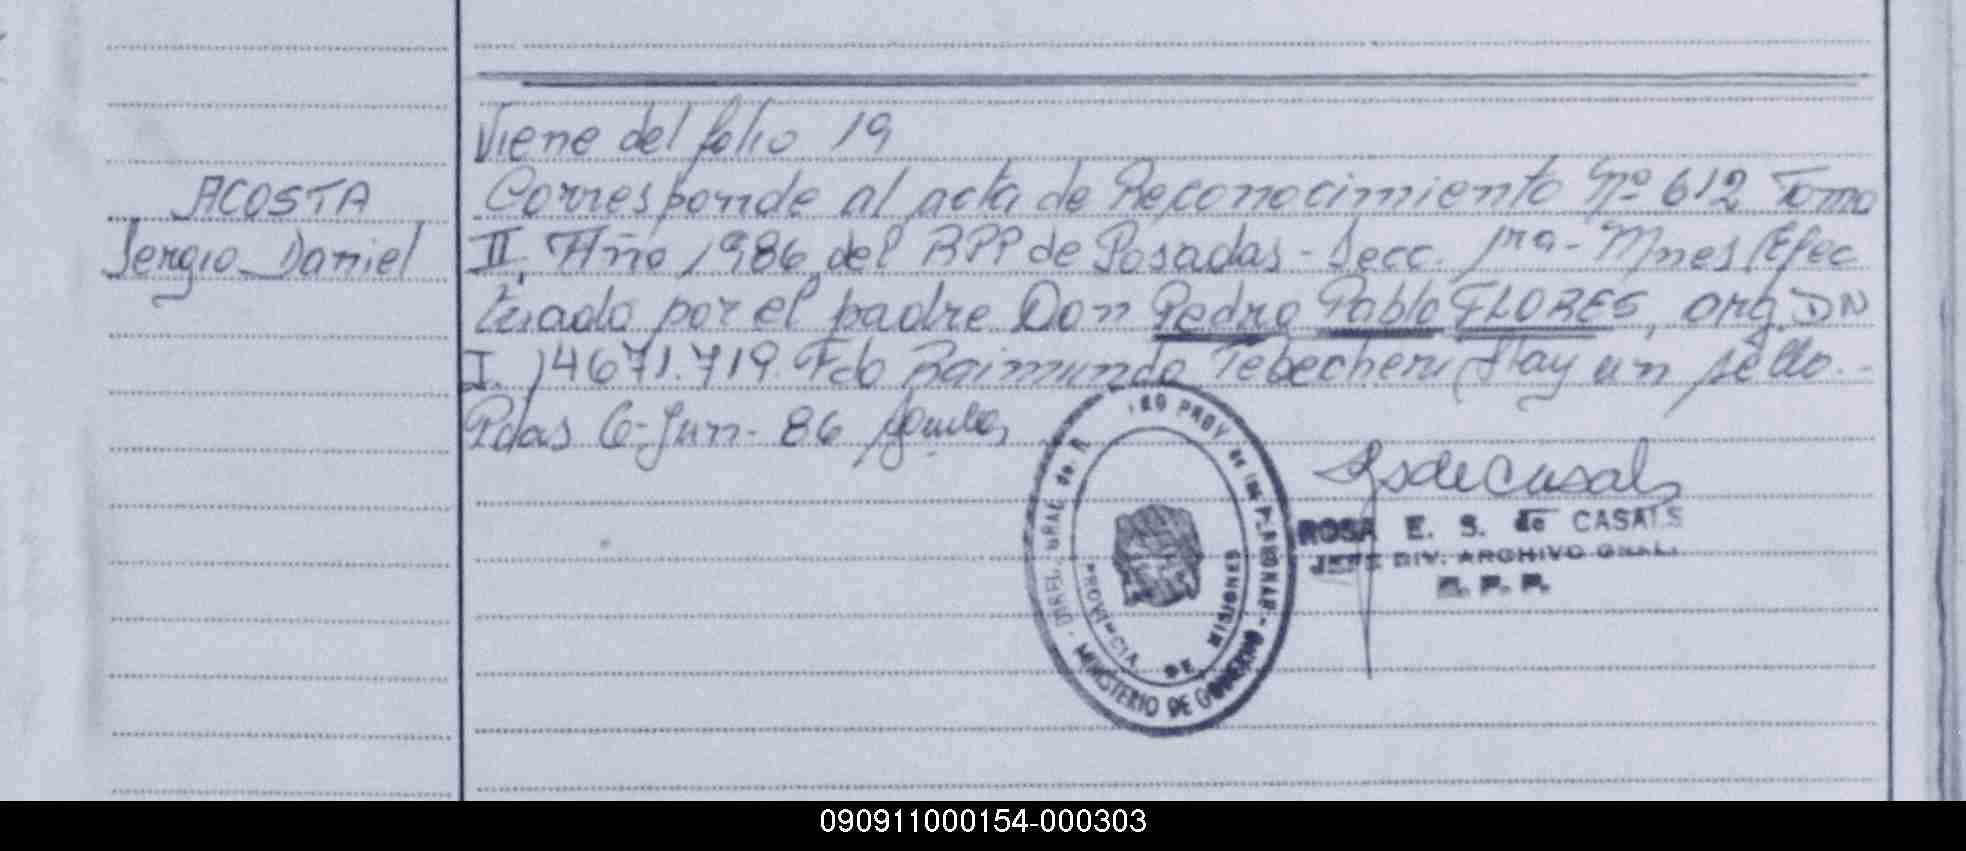 Viene del folio 19
ACOSTA
Sergio Daniel
Corresponde al acta de Reconocimiento Nº 612 Tomo
II, Año 1986, del RPP de Posadas - Secc. 1ra - Mnes/Efec
tuado por el padre Don Pedro Pablo FLORES, arg. DN
I. 14671.719. Fdo Raimundo Tebecheri, Hay un sello.-
Pdas 6-Jun-86
RsdeCasals
ROSA E. S. de CASALS
JEFE DIV. ARCHIVO GRAL.
R. P. P.
PROV de las PERSONAS
MINISTERIO DE GOBIERNO
PROVINCIA DE MISIONES
090911000154-000303